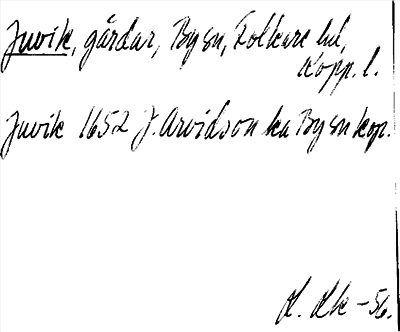 Juvik, gårdar, By sn, Folkare hd,
Kopp. l.
Juvik 1652 J. Arvidson ka By sn kop.